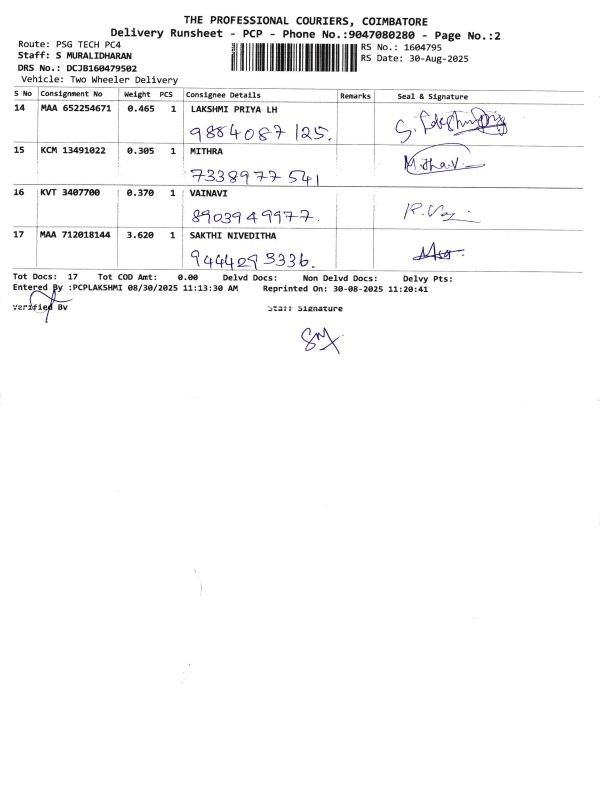 THE PROFESSIONAL COURIERS, COIMBATORE
Delivery Runsheet - PCP - Phone No.:9047080280 - Page No.:2
Route: PSG TECH PC4
RS No.: 1604795
Staff: S MURALIDHARAN
RS Date: 30-Aug-2025
DRS No.: DCJB160479502
Vehicle: Two Wheeler Delivery
S No Consignment No Weight PCS Consignee Details Remarks Seal & Signature
14 MAA 652254671 0.465 1 LAKSHMI PRIYA LH
9884087125.
15 KCM 13491022 0.305 1 MITHRA
7338977541
16 KVT 3407700 0.370 1 VAINAVI
8903949977.
17 MAA 712018144 3.620 1 SAKTHI NIVEDITHA
9444293336.
Tot Docs: 17 Tot COD Amt: 0.00 Delvd Docs: Non Delvd Docs: Delvy Pts:
Entered By :PCPLAKSHMI 08/30/2025 11:13:30 AM Reprinted On: 30-08-2025 11:20:41
Verified By Staff Signature